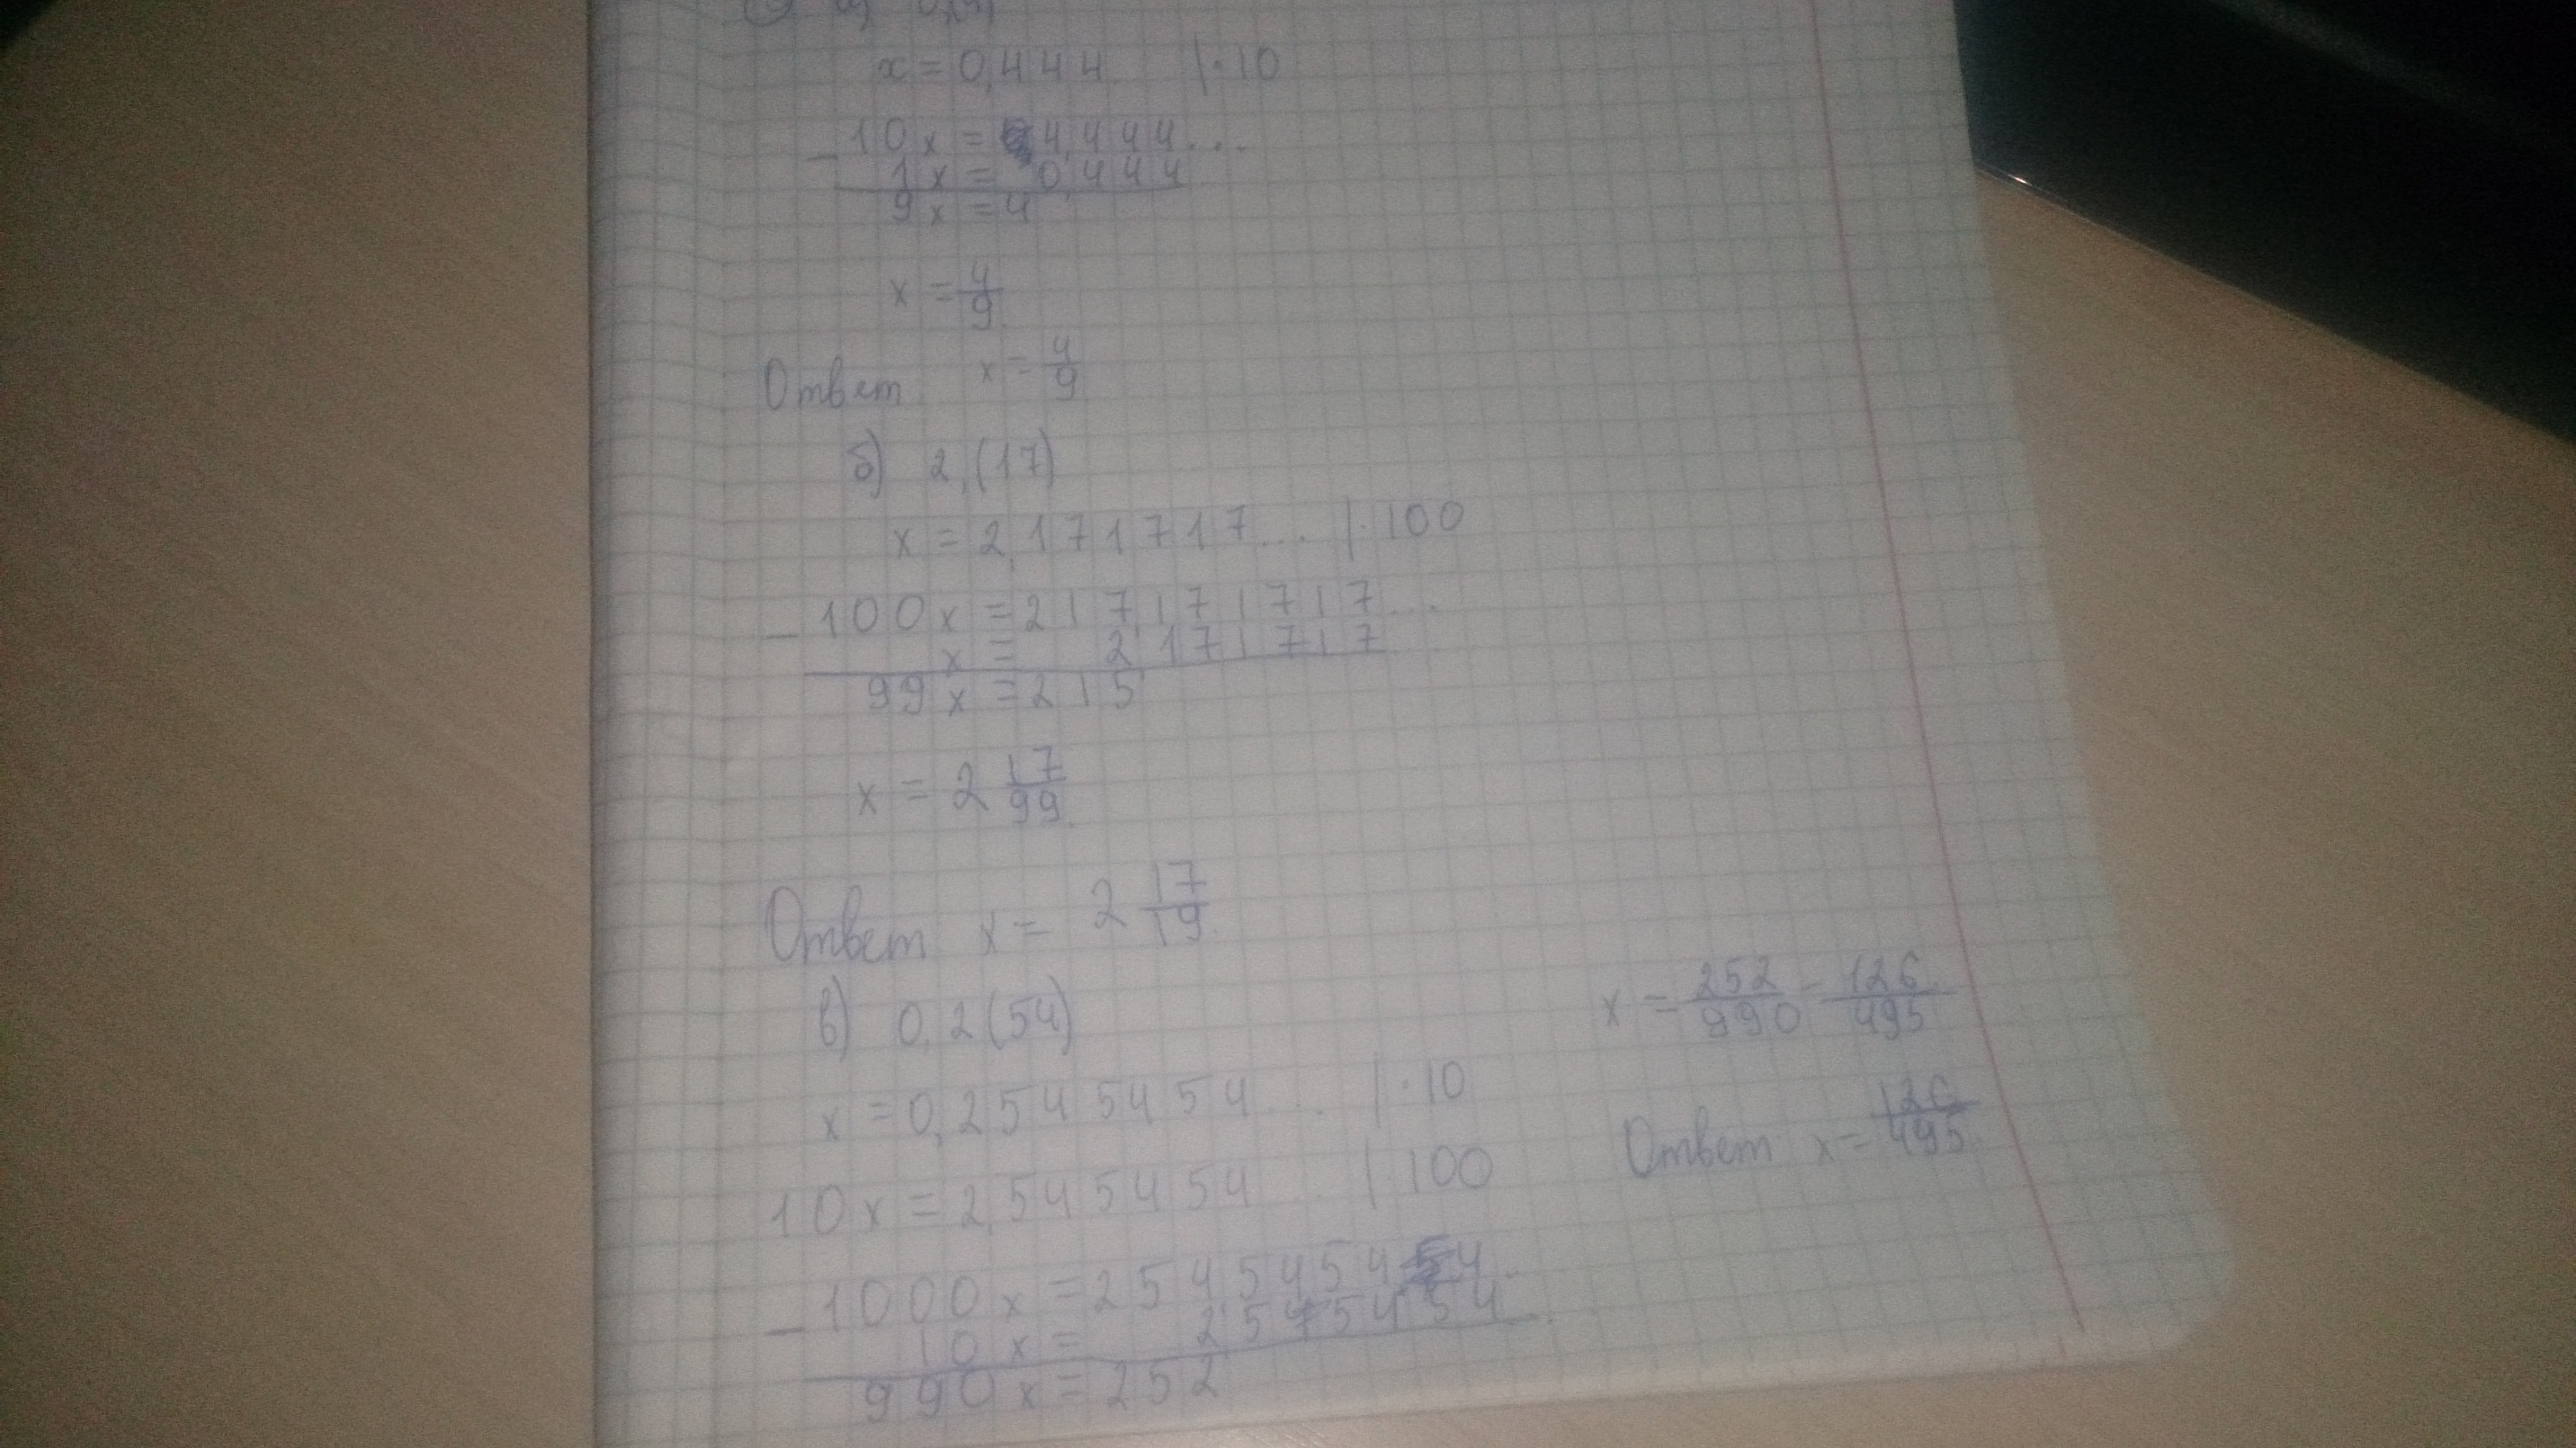 x = 0,444 | · 10
10x = 4,444...
1x = 0,444
9x = 4
x = 4/9
Ответ x = 4/9
б) 2,(17)
x = 2,171717... | · 100
100x = 217,171717...
x = 2,171717
99x = 215
x = 2 17/99
Ответ x = 2 17/19
в) 0,2(54)
x = 0,2545454... | · 10
10x = 2,545454... | · 100
1000x = 254,545454...
10x = 2,545454...
990x = 252
x = 252/990 = 126/495
Ответ x = 126/495